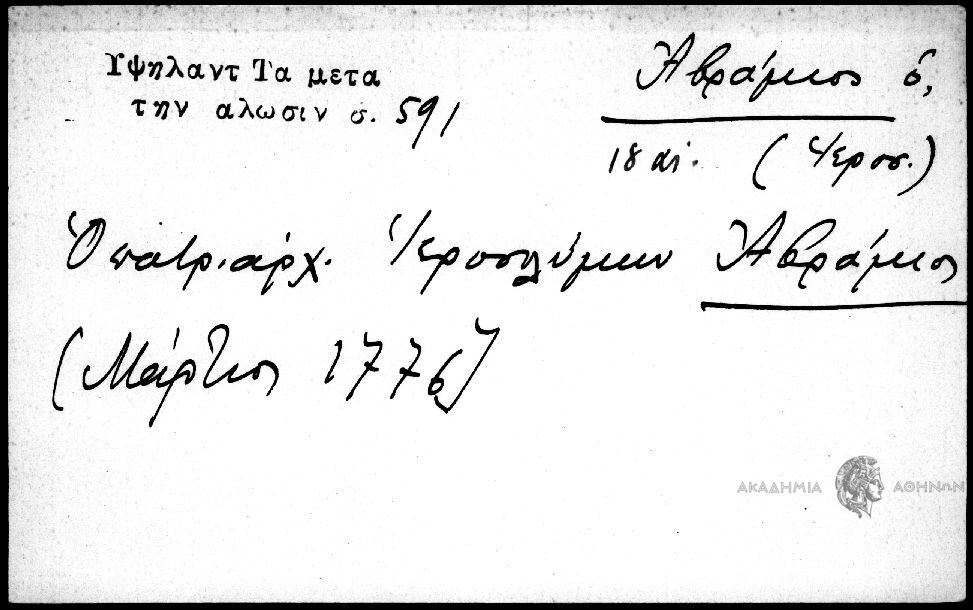 Υψηλαντ Τα μετα
την αλωσιν σ. 591
Ἀβράμιος ὁ,
18 αἰ. (Ἱεροσ.)
Ὁ πατριάρχ. Ἱεροσολύμων Ἀβράμιος
(Μάρτιος 1776)
ΑΚΑΔΗΜΙΑ ΑΘΗΝΩΝ